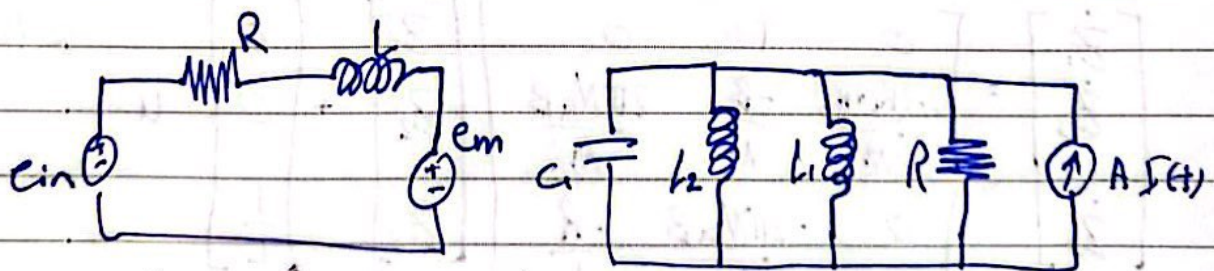 R L
ein
em
C1 L2 L1 R A I(t)